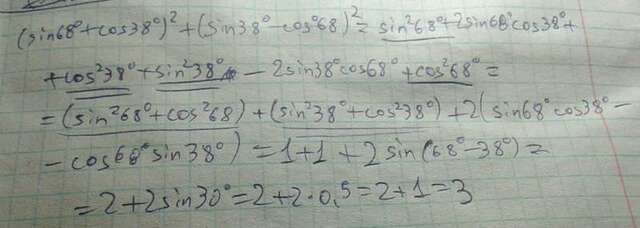 (sin68°+cos38°)²+(sin38°-cos68)²= sin²68°+2sin68°cos38°+
+cos²38°+sin²38° - 2sin38°cos68°+cos²68°=
=(sin²68°+cos²68)+(sin²38°+cos²38°)+2(sin68°cos38°-
-cos68°sin38°)=1+1+2sin(68°-38°)=
=2+2sin30°=2+2·0,5=2+1=3